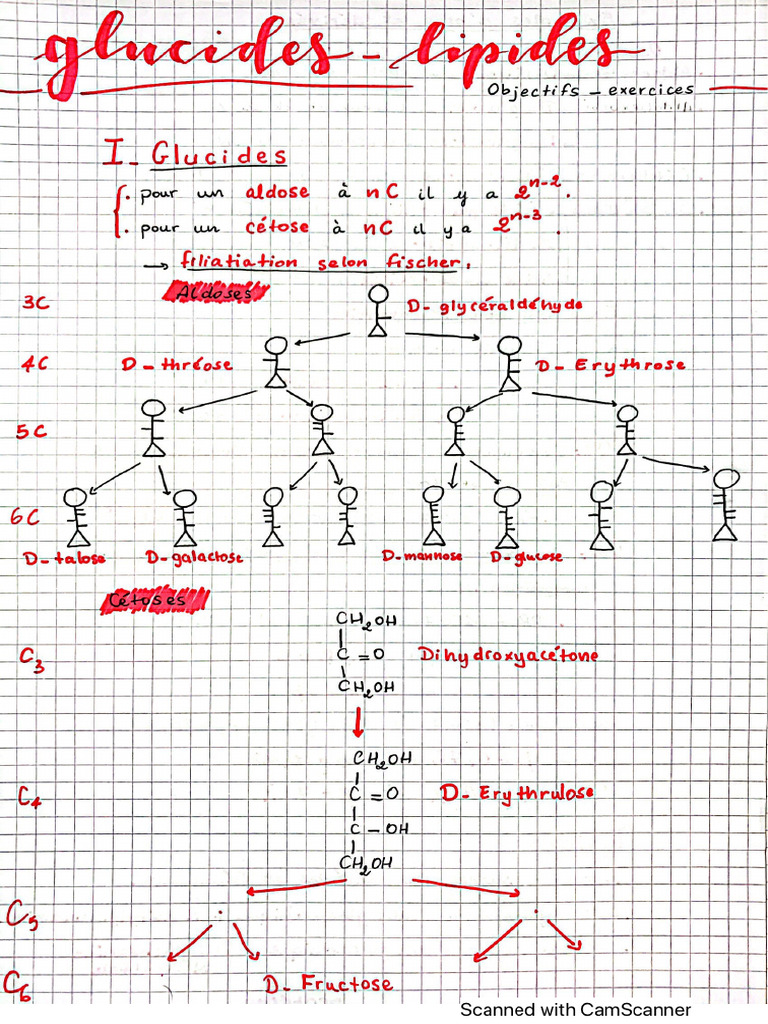 glucides - lipides
Objectifs - exercices
I - Glucides
. pour un aldose à nC il y a 2^n-2.
. pour un cétose à nC il y a 2^n-3.
→ filiatiation selon fischer.
Aldoses
3C D-glycéraldéhyde
4C D-thréose D-Erythrose
5C
6C
D-talose D-galactose D-mannose D-glucose
Cétoses
CH2OH
C3 C=O Dihydroxyacétone
CH2OH
CH2OH
C4 C=O D-Erythrulose
C-OH
CH2OH
C5
C6 D-Fructose
Scanned with CamScanner